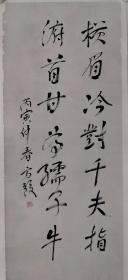 横眉冷對千夫指
俯首甘為孺子牛
丙寅仲春方毅